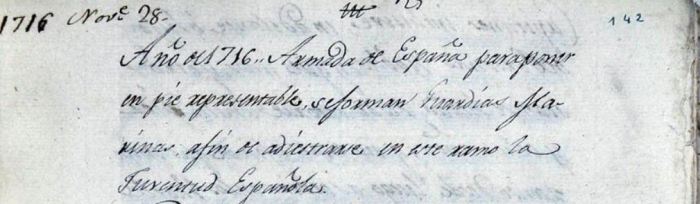 1716 Nov.e 28.
142
Año de 1716.. Armada de España para poner
en pie representable, se forman Guardias Ma-
rinas, afin de adiestrarse en este ramo la
Juventud Española.